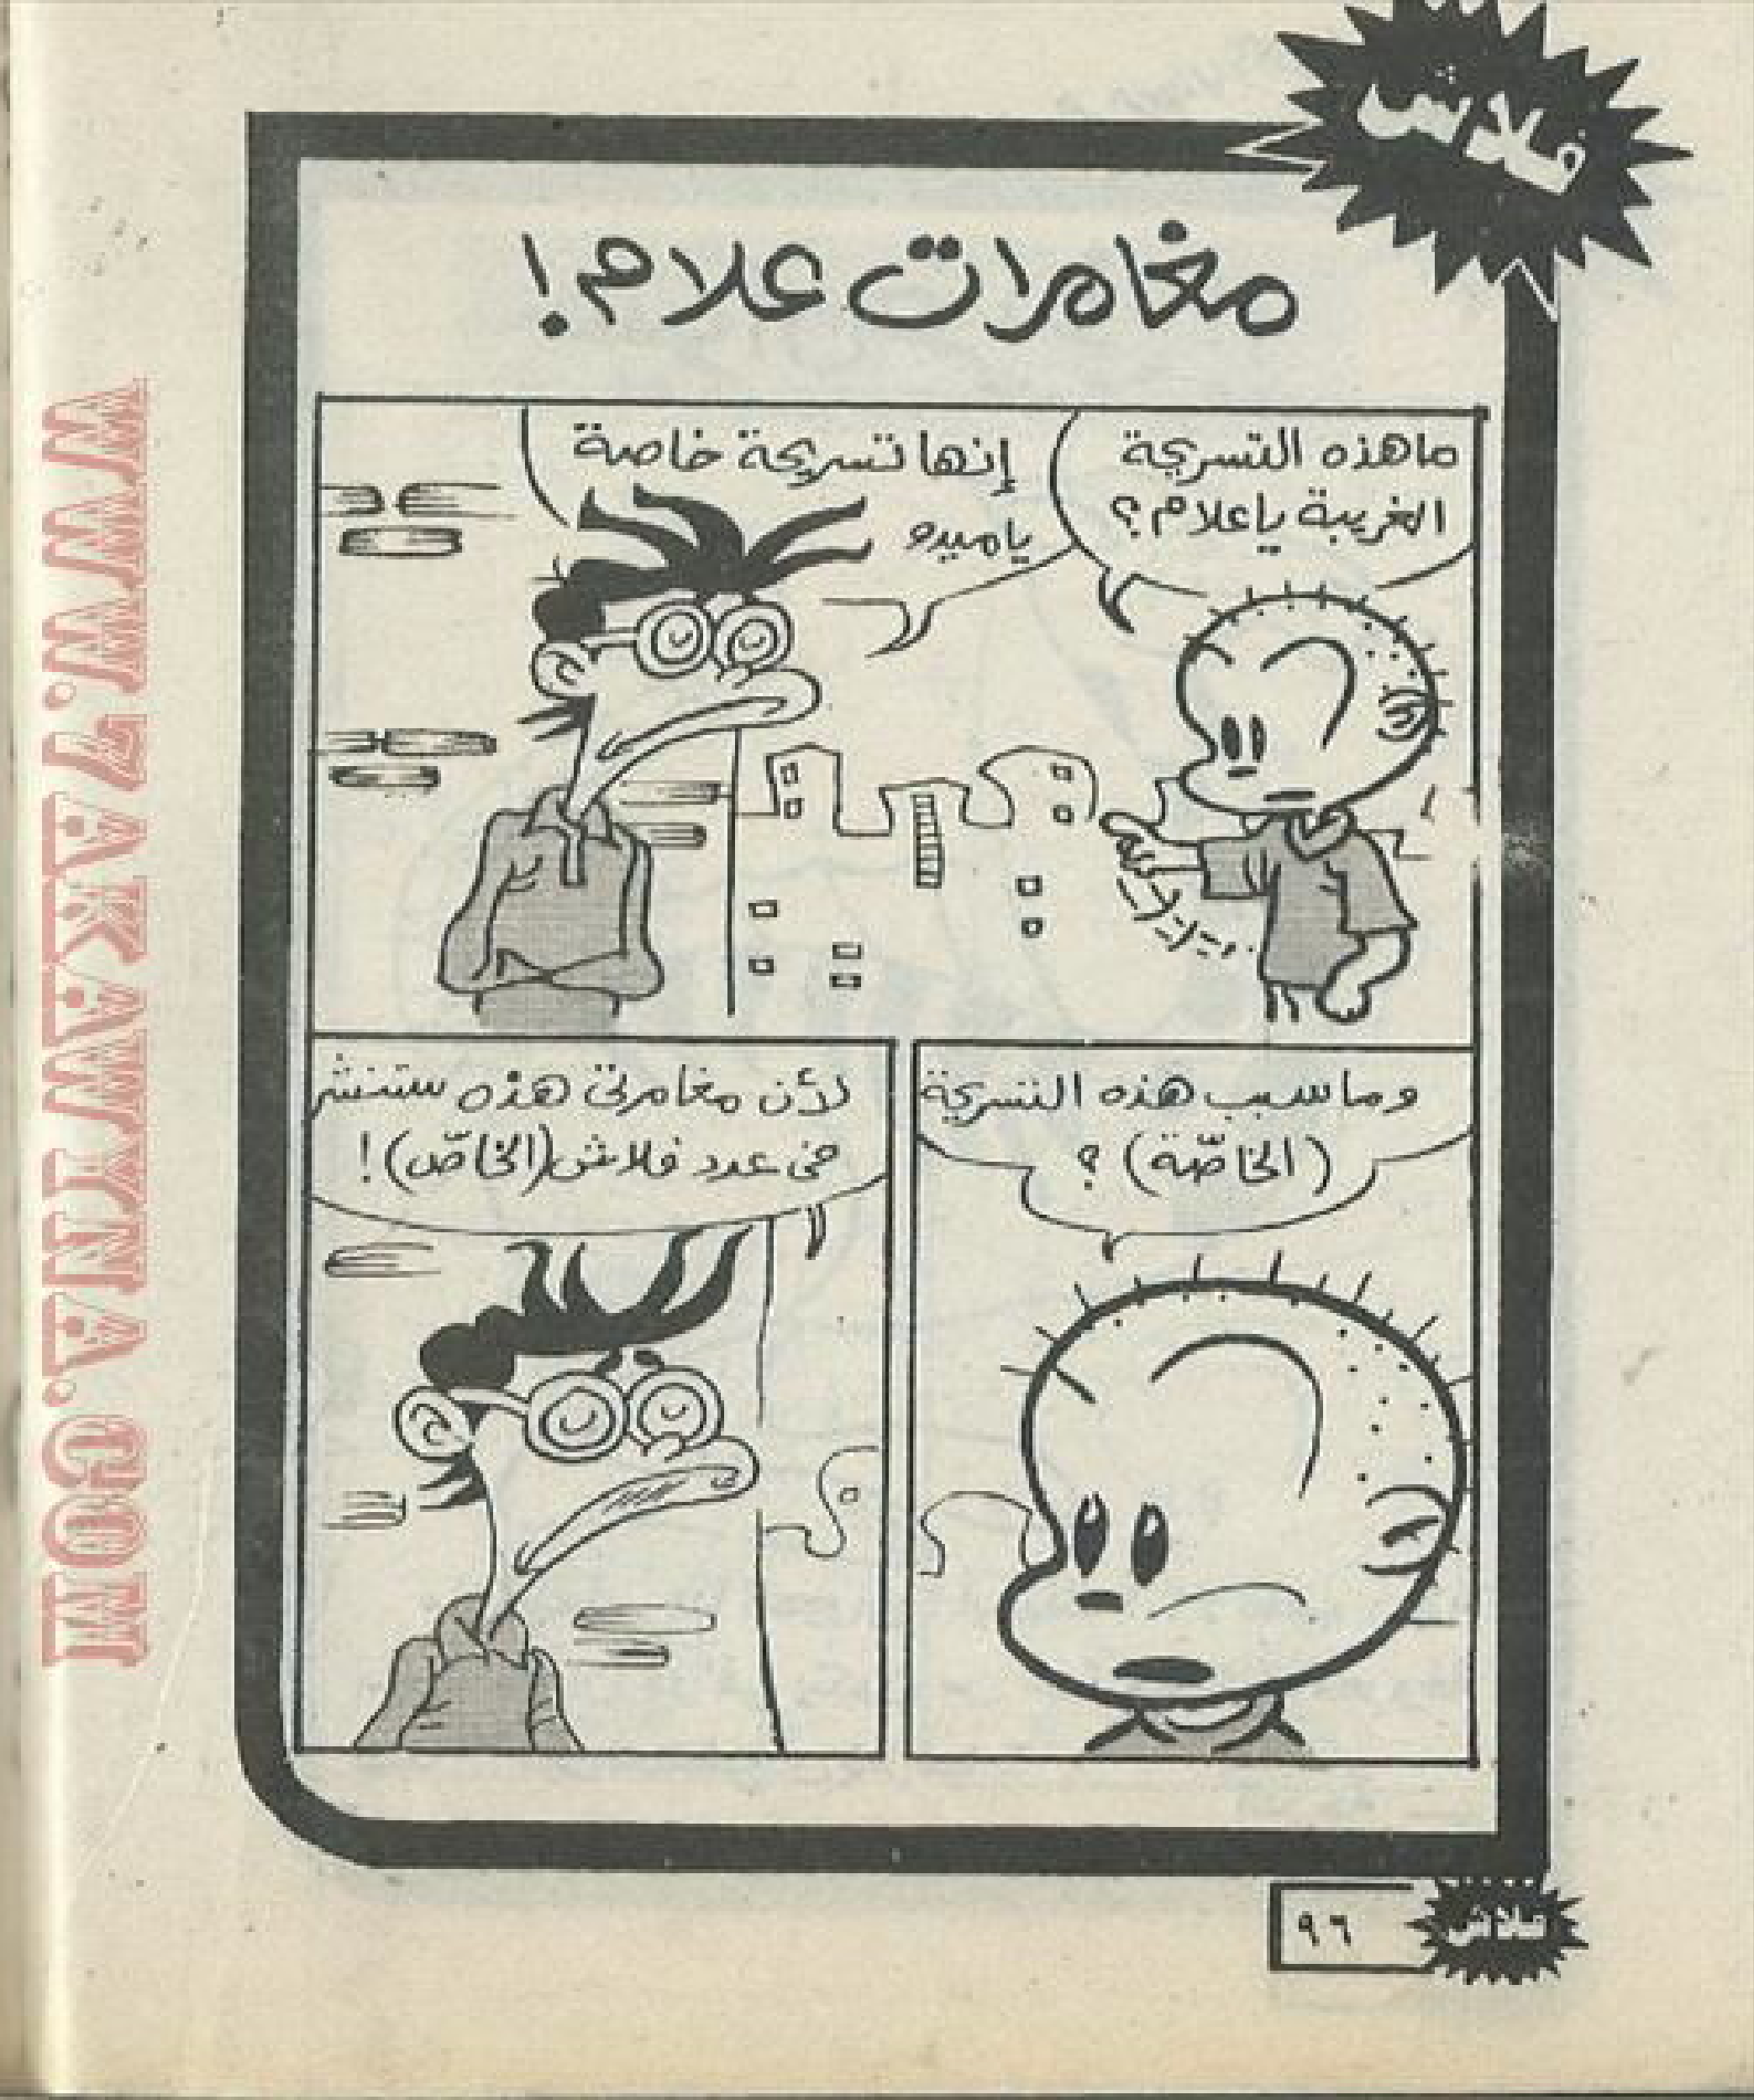 فلاش
مغامرات علام!
ماهذه التسريحة
الغريبة ياعلام؟
إنها تسريحة خاصة
ياميدو
وما سبب هذه التسريحة
(الخاصّة)؟
لأن مغامرتى هذه ستنشر
فى عدد فلاش (الخاصّ)!
فلاش
٩٦
WWW.7AKAWITNA.COM